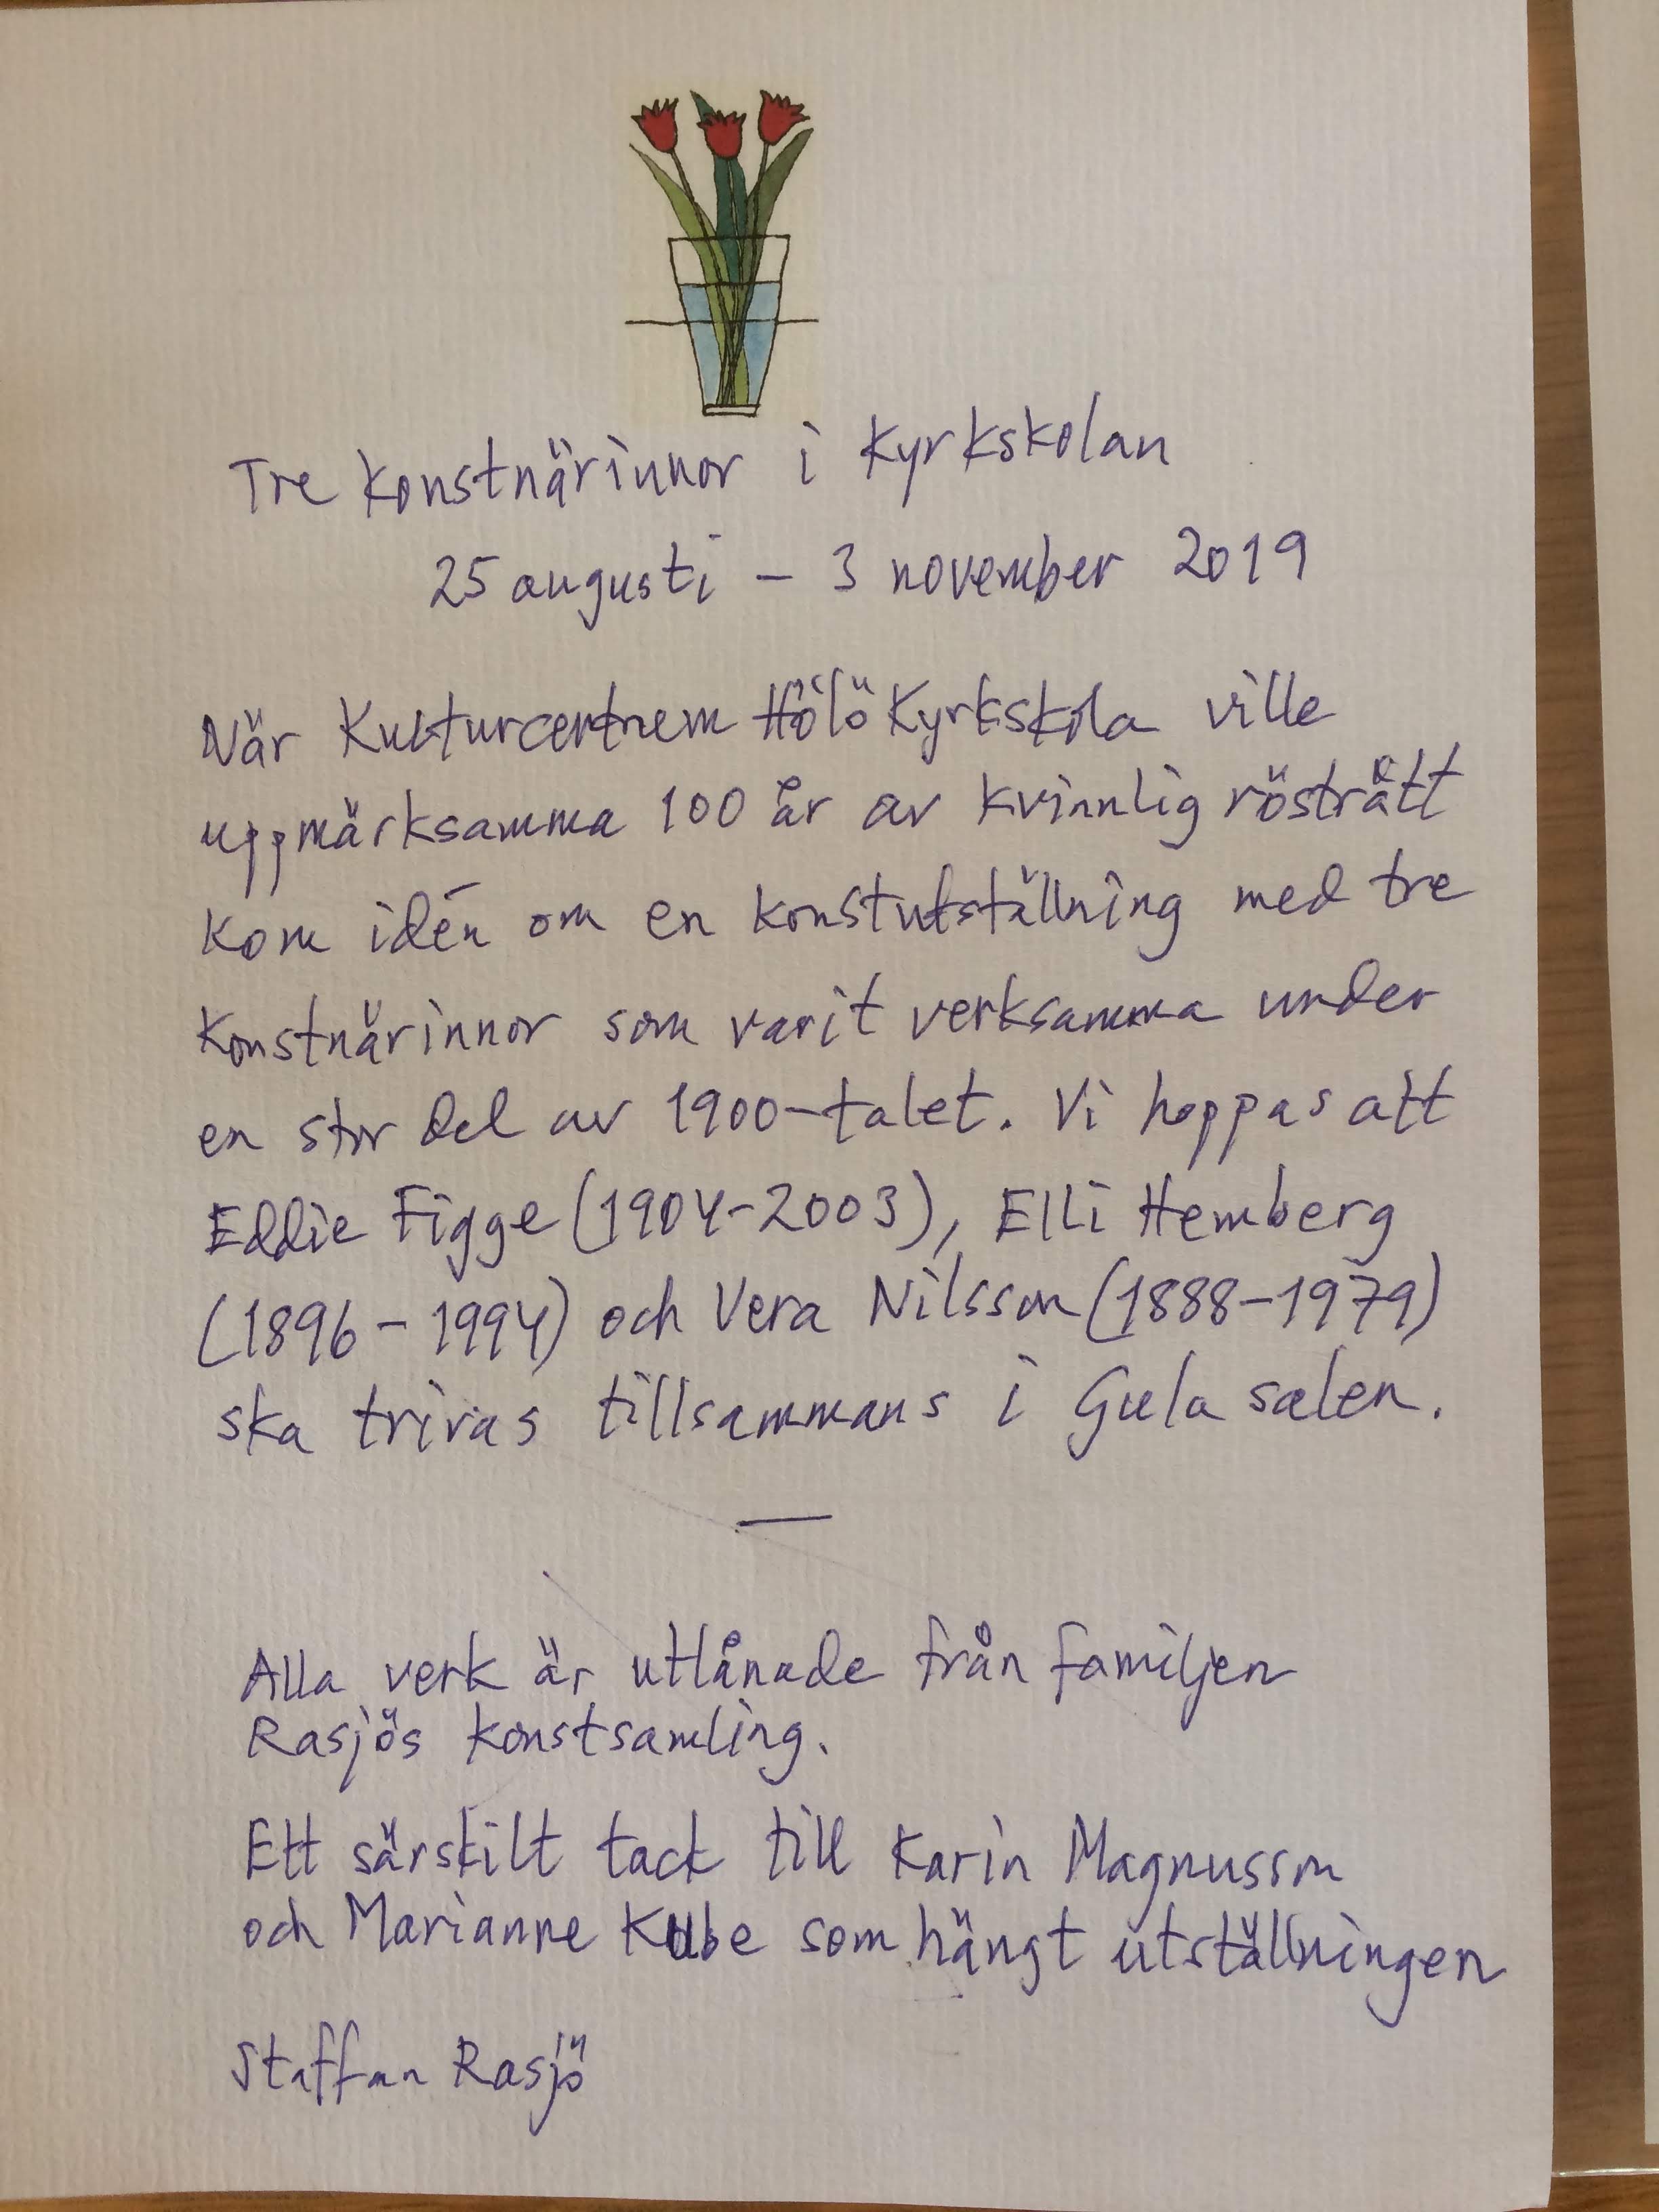 Tre konstnärinnor i Kyrkskolan
25 augusti – 3 november 2019
När Kulturcentrum Hölö Kyrkskola ville
uppmärksamma 100 år av kvinnlig rösträtt
kom idén om en konstutställning med tre
konstnärinnor som varit verksamma under
en stor del av 1900-talet. Vi hoppas att
Eddie Figge (1904-2003), Elli Hemberg
(1896-1994) och Vera Nilsson (1888-1979)
ska trivas tillsammans i Gula salen.
—
Alla verk är utlånade från familjen
Rasjös konstsamling.
Ett särskilt tack till Karin Magnusson
och Marianne Kube som hängt utställningen
Staffan Rasjö